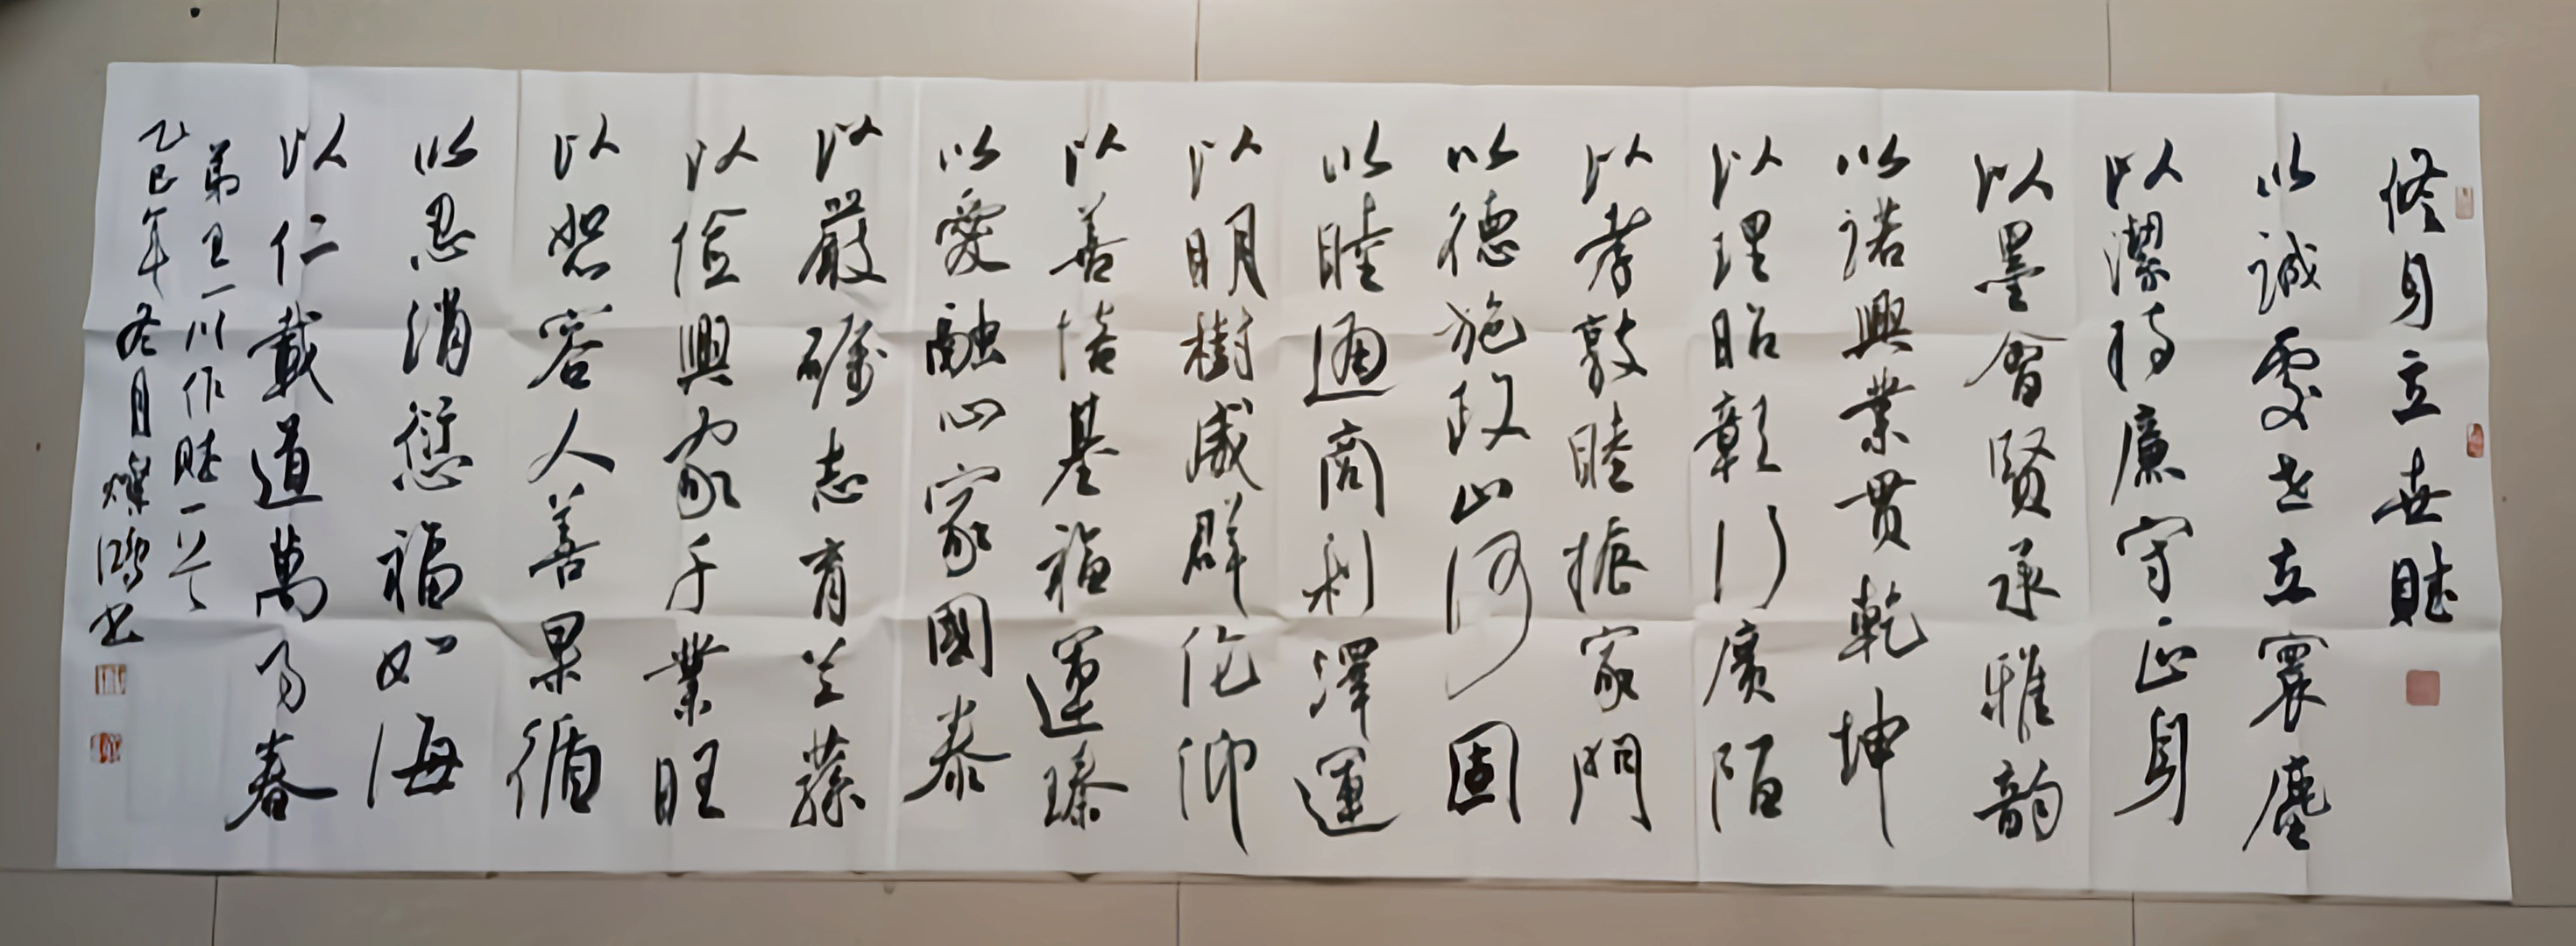 修身立世賦
以誠處世立寰塵
以潔持廉守正身
以墨會賢承雅韵
以諾興業貫乾坤
以理昭彰行廣陌
以孝敦睦振家門
以德施政山河固
以睦通商利澤運
以明樹威群倫仰
以善培基福運臻
以愛融心家國泰
以嚴礪志育兰蓀
以儉興家千業旺
以恕容人善果循
以忍消愆福如海
以仁載道萬年春
弟王一川作賦一首
乙巳年冬月燦鴻书